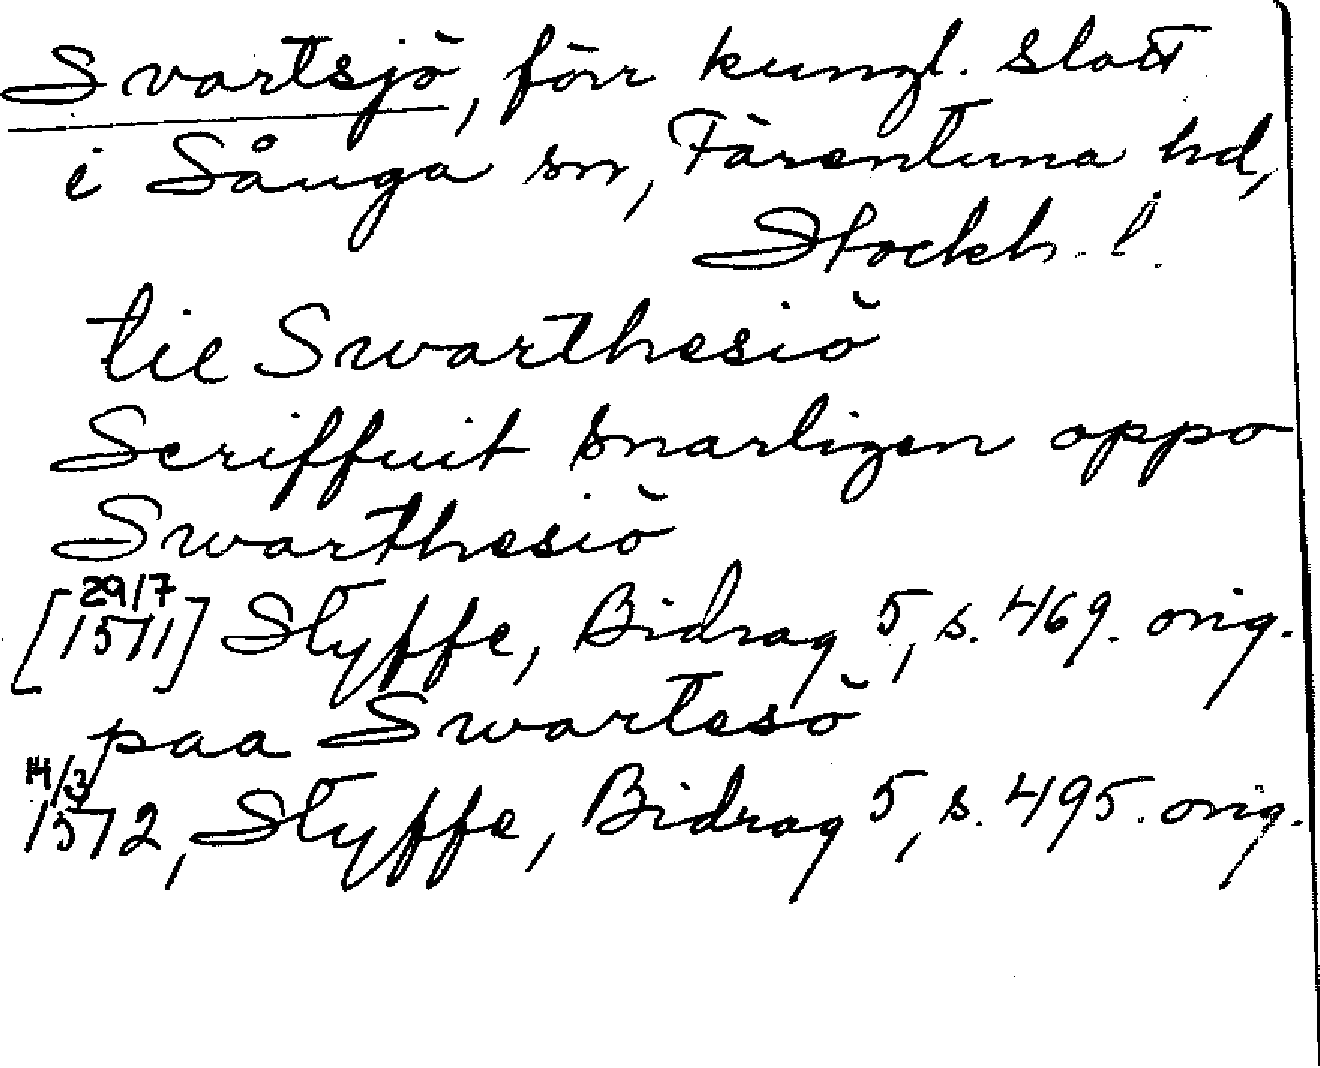 Svartsjö, förr kungl. slott
i Sånga sn, Färentuna hd,
Stockh. l.
til Swarthesiö
Scriffuit snarligen oppo
Swarthesiö
29/7
[1511] Styffe, Bidrag 5, s. 469. orig.
paa Swartesö
14/3
1512, Styffe, Bidrag 5, s. 495. orig.